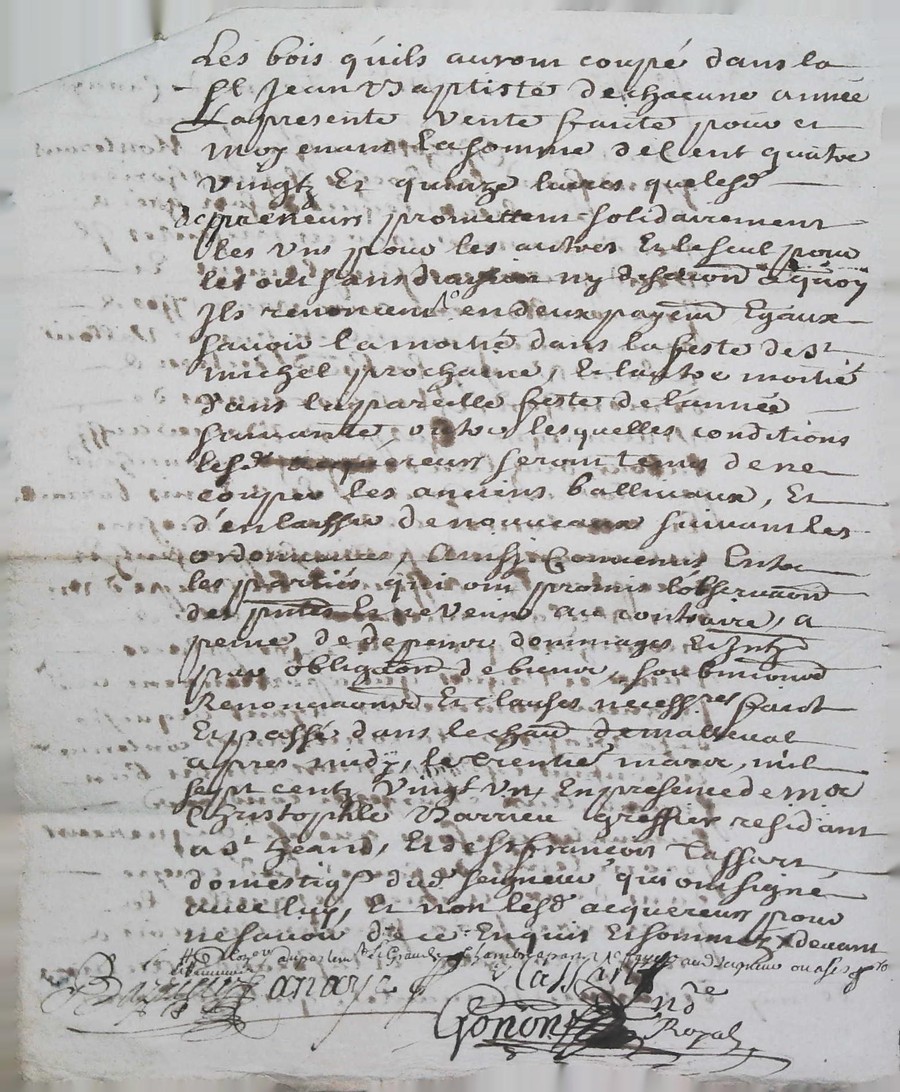 Les bois qu'ils auront coupé dans la
St Jean Baptiste de chacune année
La presente vente faitte pour et
moyenant la somme de Cent quatre
vingtz Et quinze livres que lesd
preneurs promettent solidairement
les uns pour les autres Et le seul pour
le tout sans division ny discution a quoy
Ils renoncent en deux payemt Egaux
savoir la moitié dans la feste de St
michel prochaine, Et l'autre moitié
dans la pareille feste de l'année
suivante, outre lesquelles conditions
lesd acquereurs seront tenus de ne
couper les anciens balliveaux, Et
d'en laisser de nouveaux suivant les
ordonnances, Ainsy Convenus Entre
les parties qui ont promis l'observaon
des pntes Et ne venir au contraire, a
peine de depens dommages Et Intz
par obligaon de biens, soubmions
Renonciaons Et clauses necessres fait
Et passé dans le chau de malleval
apres midy, le trentie mars, mil
sept centz vingt un, En presence de mre
Christophle Barrieu greffier residant
a St Jeand, Et de sr françois Tassart
domestiq dud seigneur qui ont signé
avec luy, Et non lesd acquereurs pour
ne savoir de ce Enquis Et sommez devant
Tassart
Gonon
nre
Royal